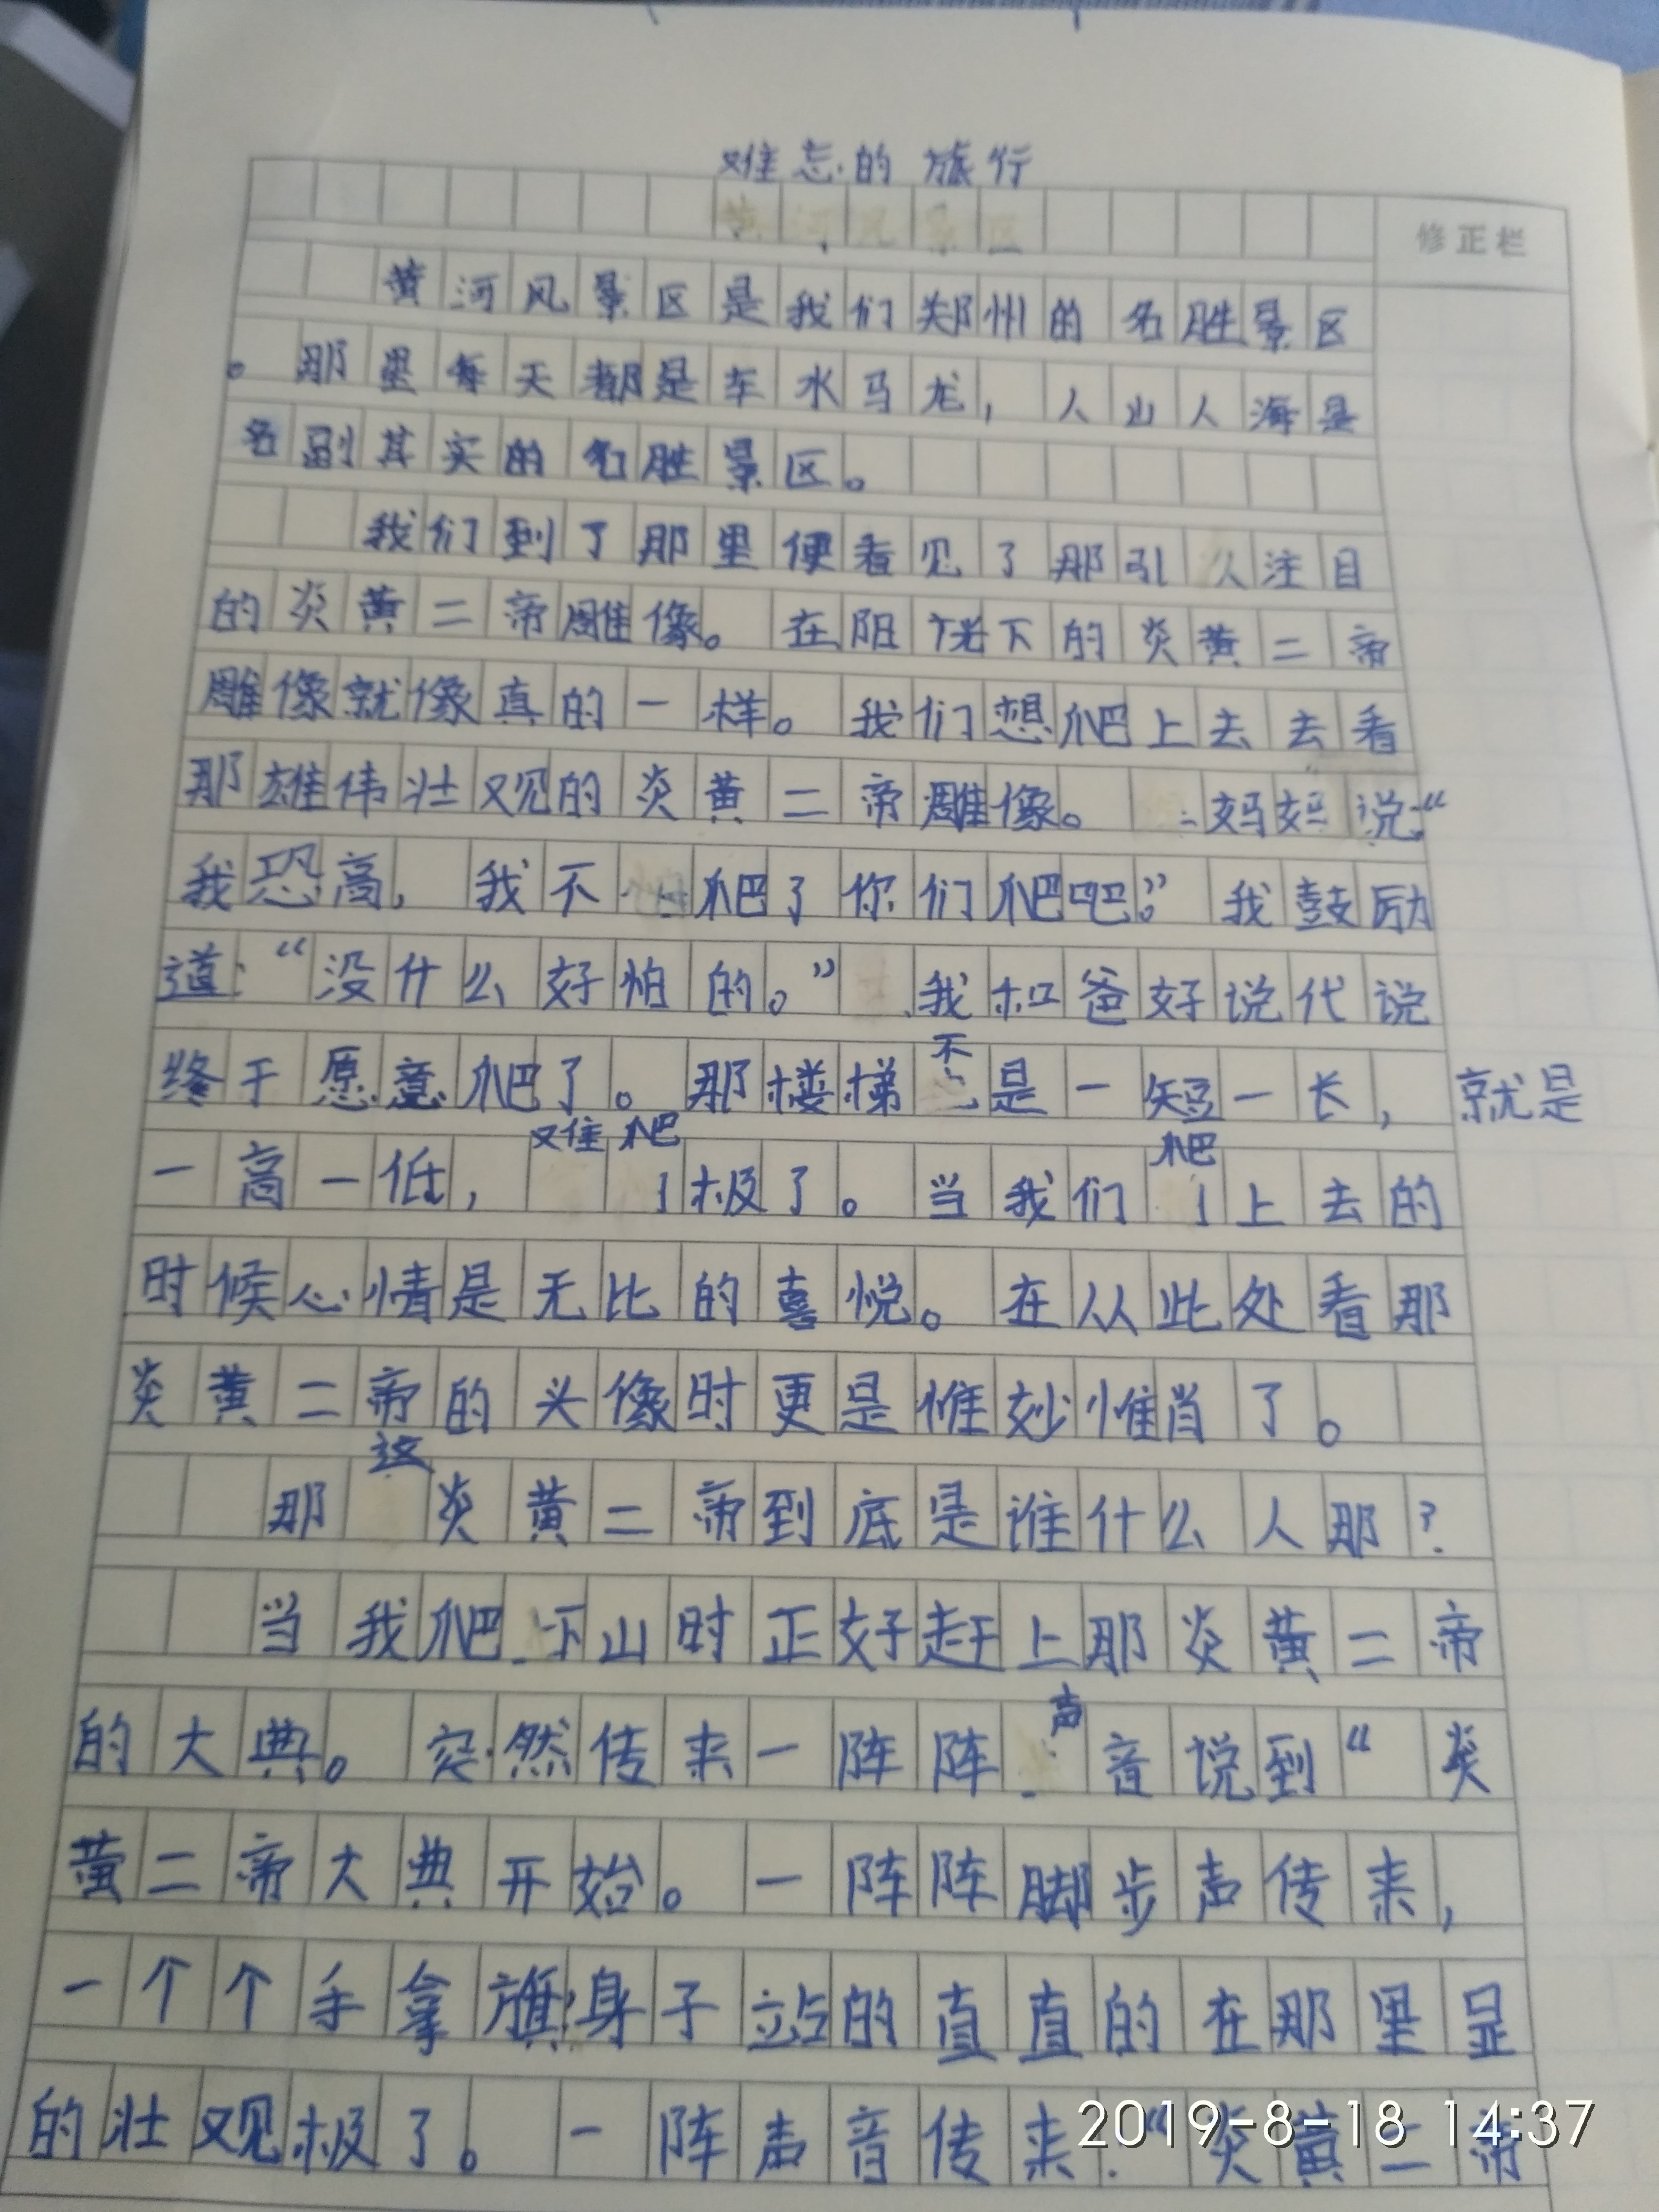 难忘的旅行
黄河风景区
修正栏
黄河风景区是我们郑州的名胜景区
。那里每天都是车水马龙，人山人海是
名副其实的名胜景区。
我们到了那里便看见了那引人注目
的炎黄二帝雕像。在阳光下的炎黄二帝
雕像就像真的一样。我们想爬上去去看
那雄伟壮观的炎黄二帝雕像。妈妈说:“
我恐高，我不爬了你们爬吧。”我鼓励
道:“没什么好怕的。”我和爸好说代说
终于愿意爬了。那楼梯不是一短一长，就是
一高一低，难爬极了。当我们爬上去的
时候心情是无比的喜悦。在从此处看那
炎黄二帝的头像时更是惟妙惟肖了。
那这炎黄二帝到底是谁什么人那?
当我爬下山时正好赶上那炎黄二帝
的大典。突然传来一阵阵声音说到“炎
黄二帝大典开始。一阵阵脚步声传来，
一个个手拿旗身子站的直直的在那里显
的壮观极了。一阵声音传来:“炎黄二帝
2019-8-18 14:37